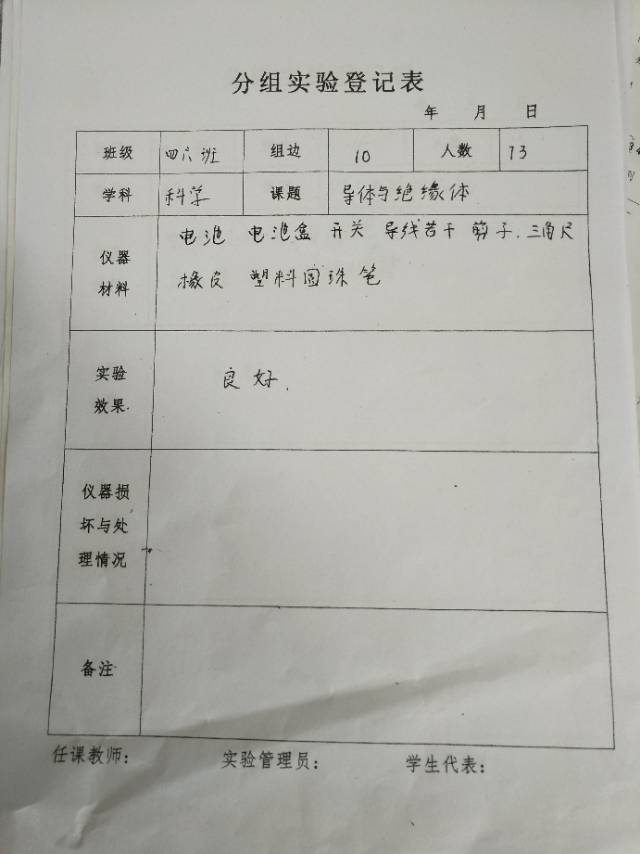 分组实验登记表
年 月 日
班级 四六班 组边 10 人数 73
学科 科学 课题 导体与绝缘体
仪器材料 电池 电池盒 开关 导线若干 剪子.三角尺
橡皮 塑料圆珠笔
实验效果. 良好.
仪器损坏与处理情况
备注
任课教师： 实验管理员： 学生代表：